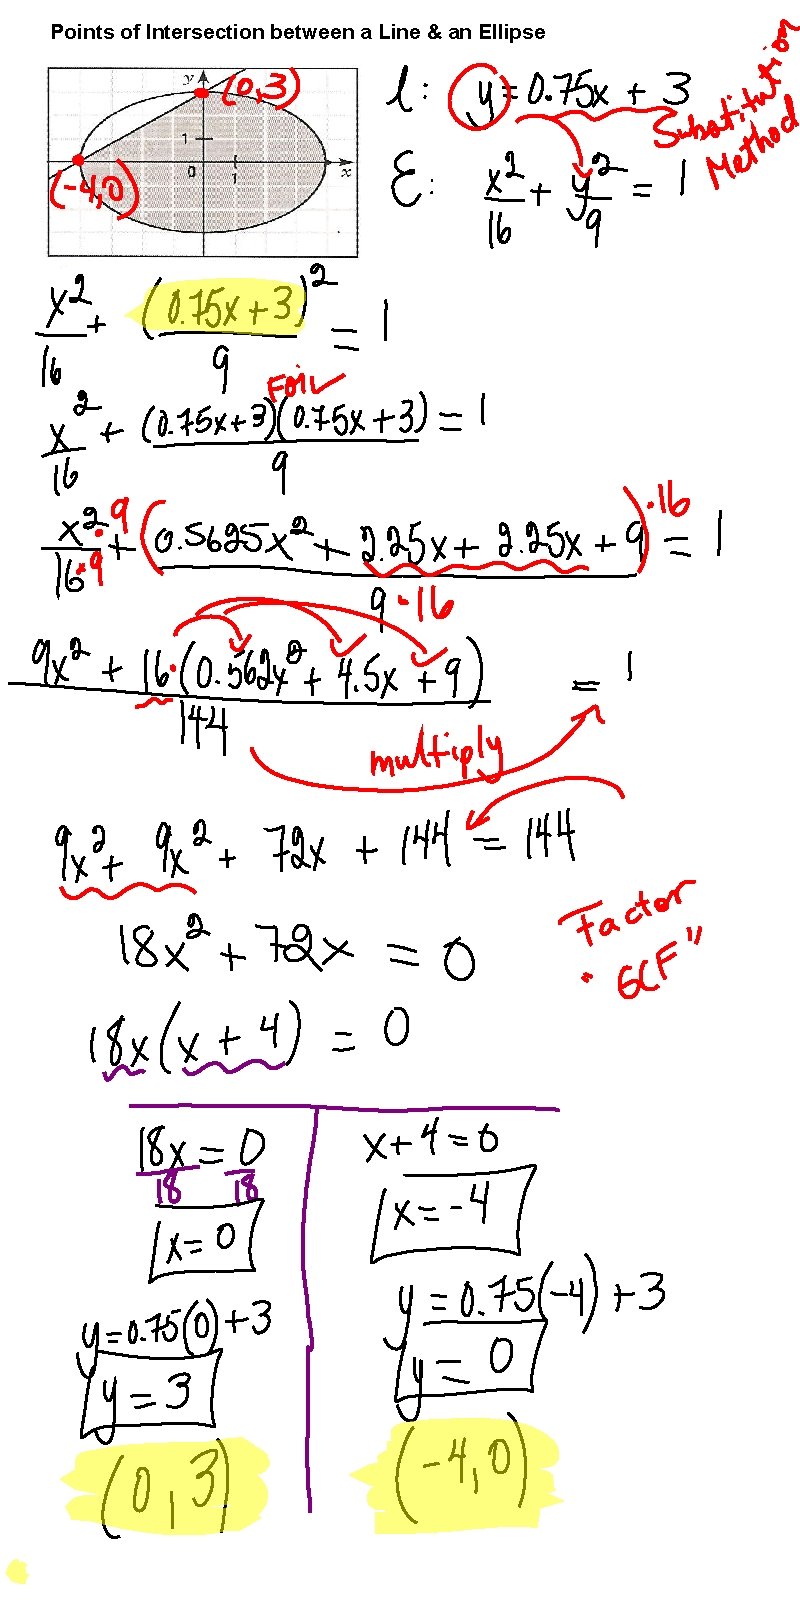 Points of Intersection between a Line & an Ellipse
y (0,3)
1
0 1 x
(-4,0)
l: y = 0.75x + 3
Substitution Method
E: x²/16 + y²/9 = 1
x²/16 + (0.75x + 3)²/9 = 1
FOIL
x²/16 + (0.75x+3)(0.75x+3)/9 = 1
x²·9/16·9 + (0.5625x² + 2.25x + 2.25x + 9)·16/9·16 = 1
9x² + 16·(0.562x² + 4.5x + 9)/144 = 1
multiply
9x² + 9x² + 72x + 144 = 144
18x² + 72x = 0
Factor
• GCF"
18x(x + 4) = 0
18x/18 = 0/18
x = 0
y = 0.75(0) + 3
y = 3
(0, 3)
x + 4 = 0
x = -4
y = 0.75(-4) + 3
y = 0
(-4, 0)